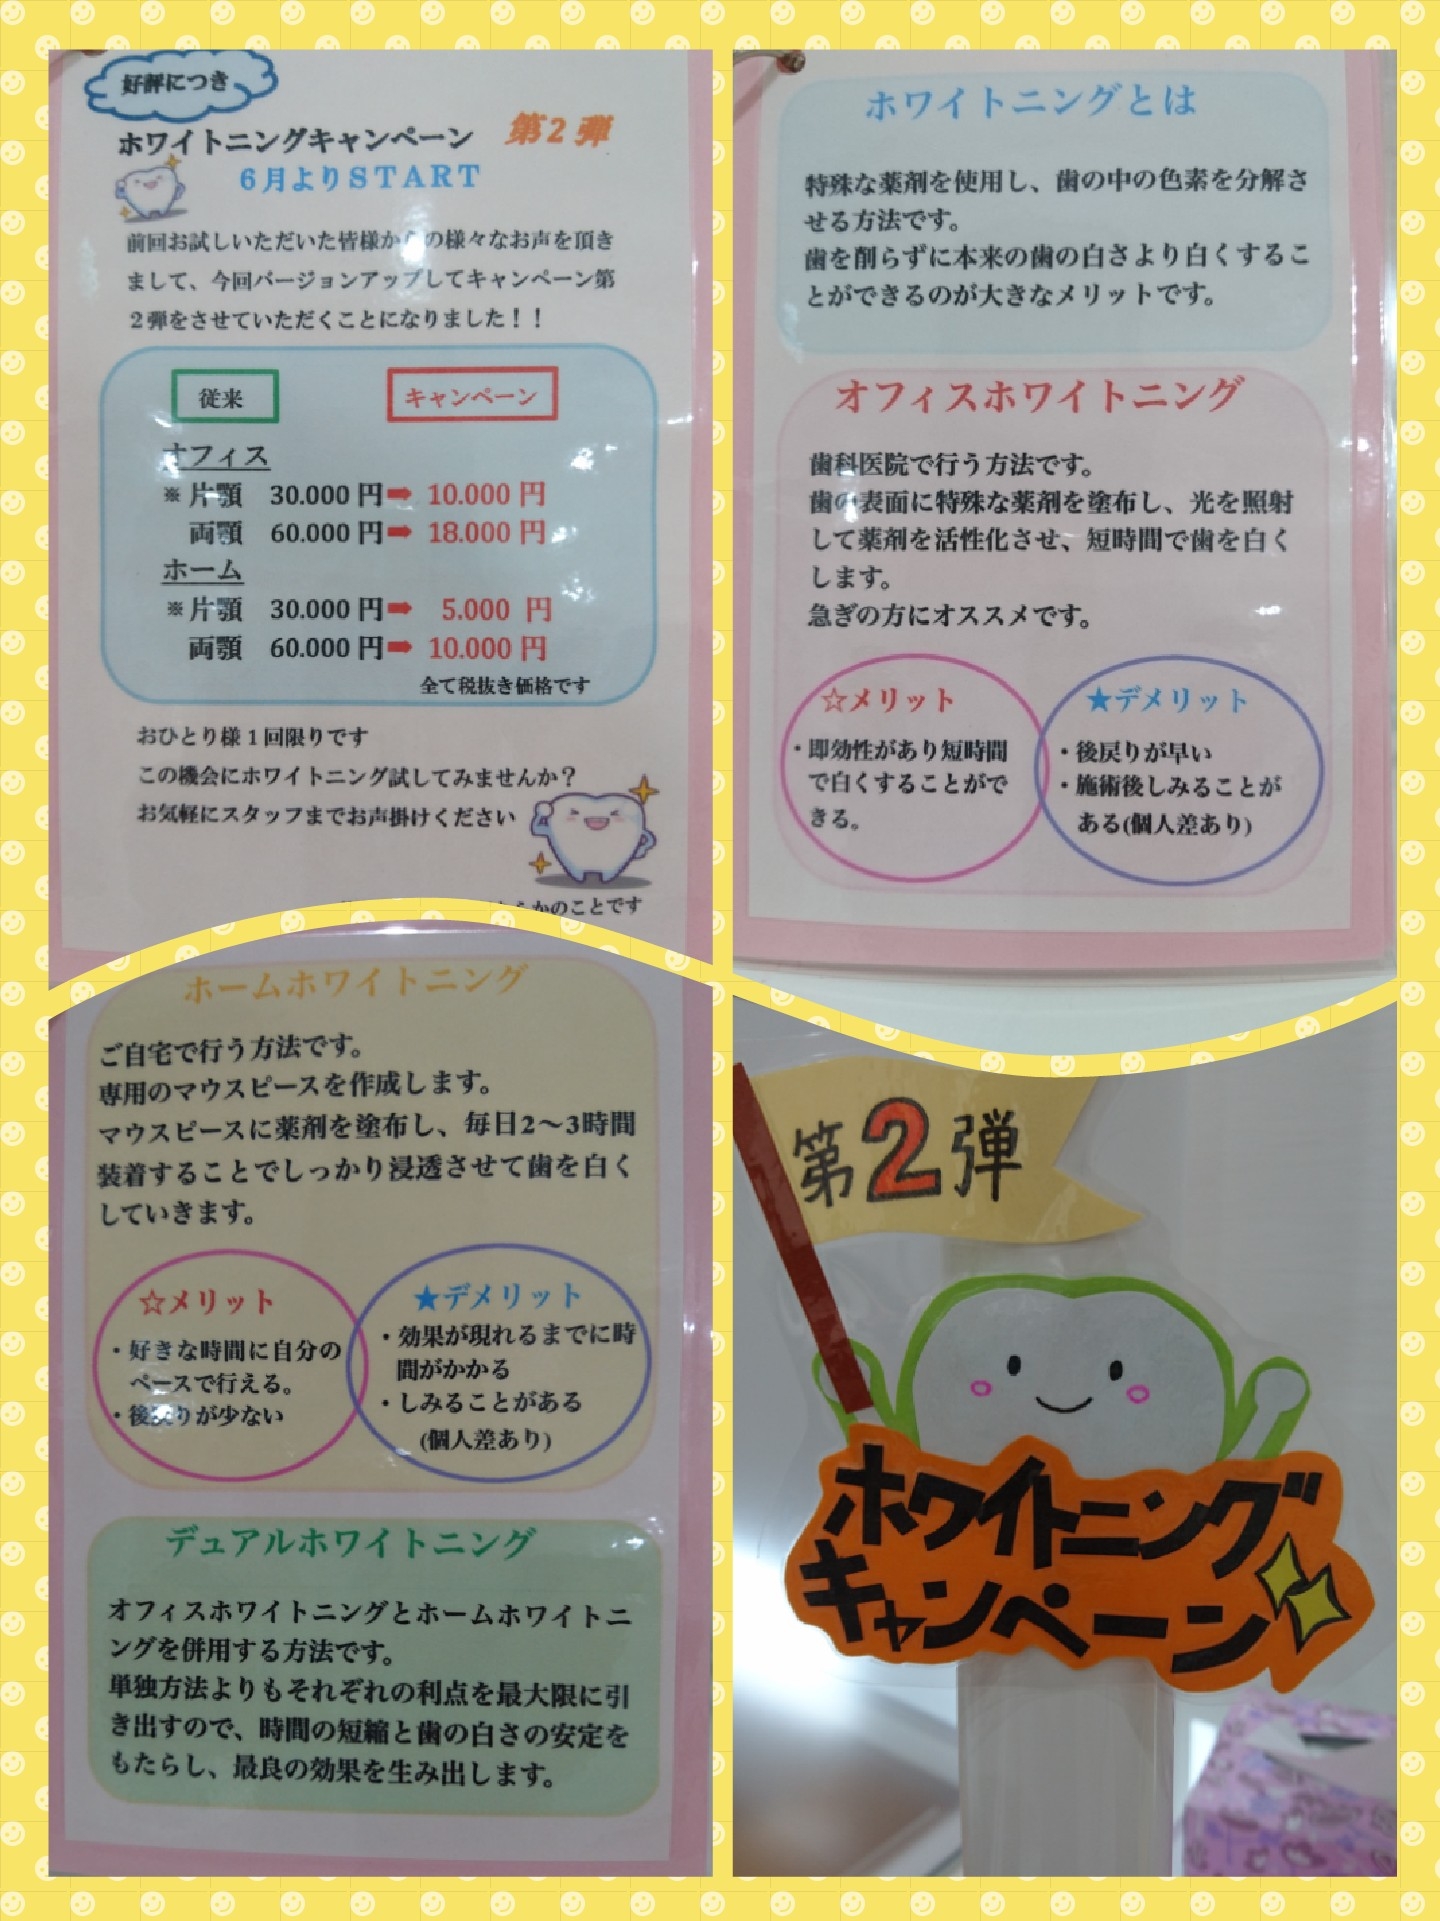 好評につき
ホワイトニングキャンペーン 第2弾
6月よりSTART
前回お試しいただいた皆様からの様々なお声を頂き
まして、今回バージョンアップしてキャンペーン第
2弾をさせていただくことになりました！！
従来 キャンペーン
オフィス
※片顎 30.000円➡ 10.000円
両顎 60.000円➡ 18.000円
ホーム
※片顎 30.000円➡ 5.000 円
両顎 60.000円➡ 10.000円
全て税抜き価格です
おひとり様1回限りです
この機会にホワイトニング試してみませんか？
お気軽にスタッフまでお声掛けください
かのことです
ホワイトニングとは
特殊な薬剤を使用し、歯の中の色素を分解さ
せる方法です。
歯を削らずに本来の歯の白さより白くするこ
とができるのが大きなメリットです。
オフィスホワイトニング
歯科医院で行う方法です。
歯の表面に特殊な薬剤を塗布し、光を照射
して薬剤を活性化させ、短時間で歯を白く
します。
急ぎの方にオススメです。
☆メリット
・即効性があり短時間
で白くすることがで
きる。
★デメリット
・後戻りが早い
・施術後しみることが
ある(個人差あり)
ホームホワイトニング
ご自宅で行う方法です。
専用のマウスピースを作成します。
マウスピースに薬剤を塗布し、毎日2～3時間
装着することでしっかり浸透させて歯を白く
していきます。
☆メリット
・好きな時間に自分の
ペースで行える。
・後戻りが少ない
★デメリット
・効果が現れるまでに時
間がかかる
・しみることがある
(個人差あり)
デュアルホワイトニング
オフィスホワイトニングとホームホワイトニ
ングを併用する方法です。
単独方法よりもそれぞれの利点を最大限に引
き出すので、時間の短縮と歯の白さの安定を
もたらし、最良の効果を生み出します。
第2弾
ホワイトニング
キャンペーン